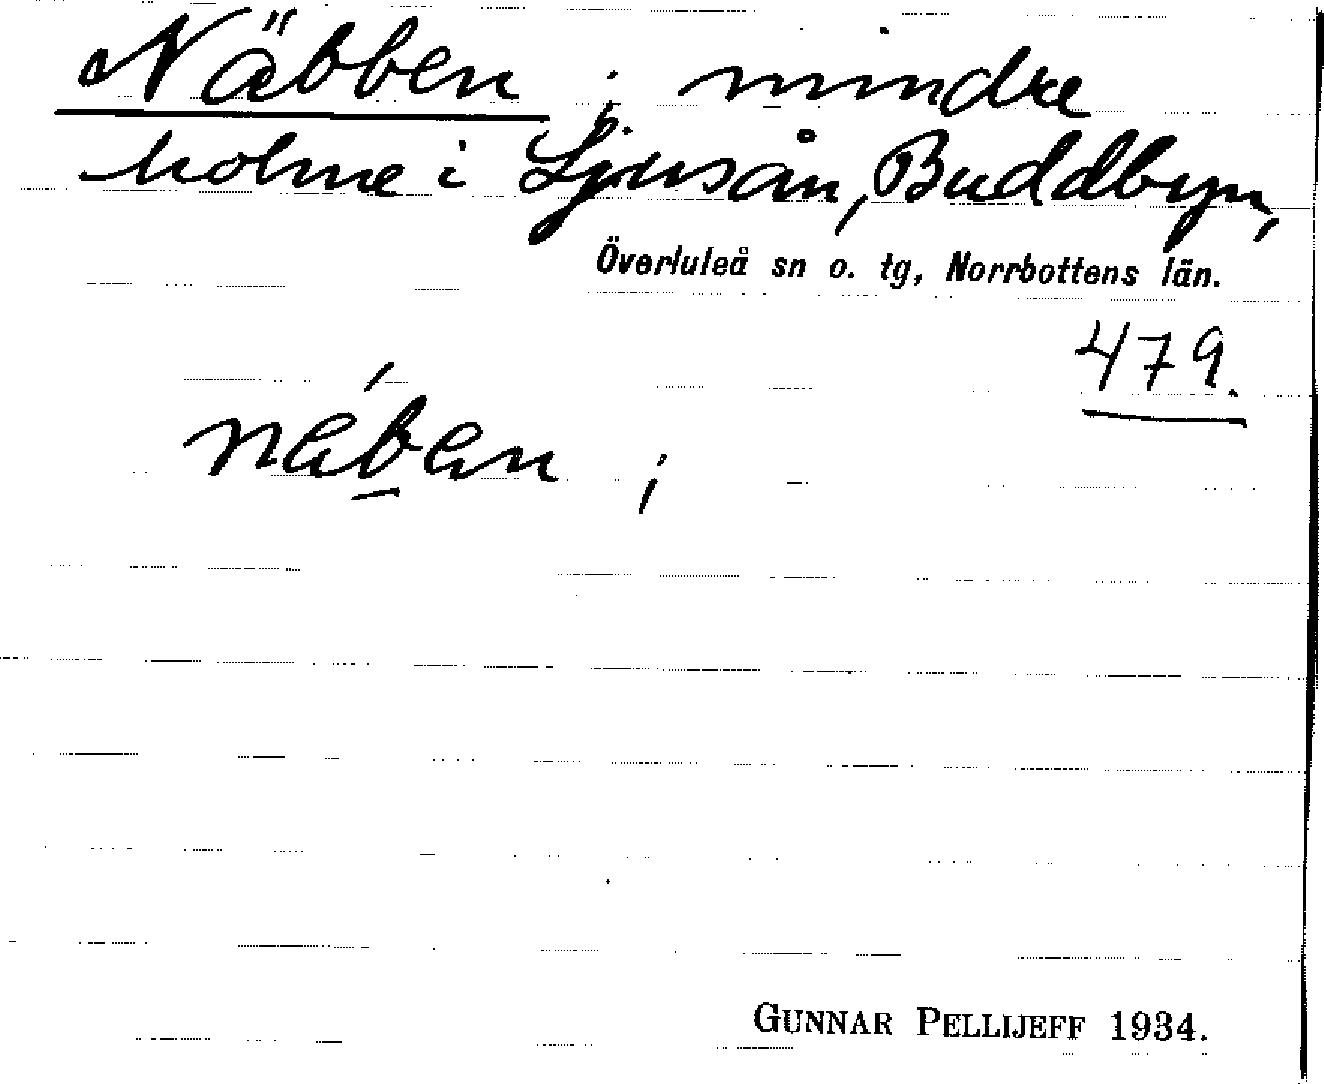 Näbben ; mindre
holme i Ljusån, Buddbyn,
Överluleå sn o. tg, Norrbottens län.
479.
GUNNAR PELLIJEFF 1934.